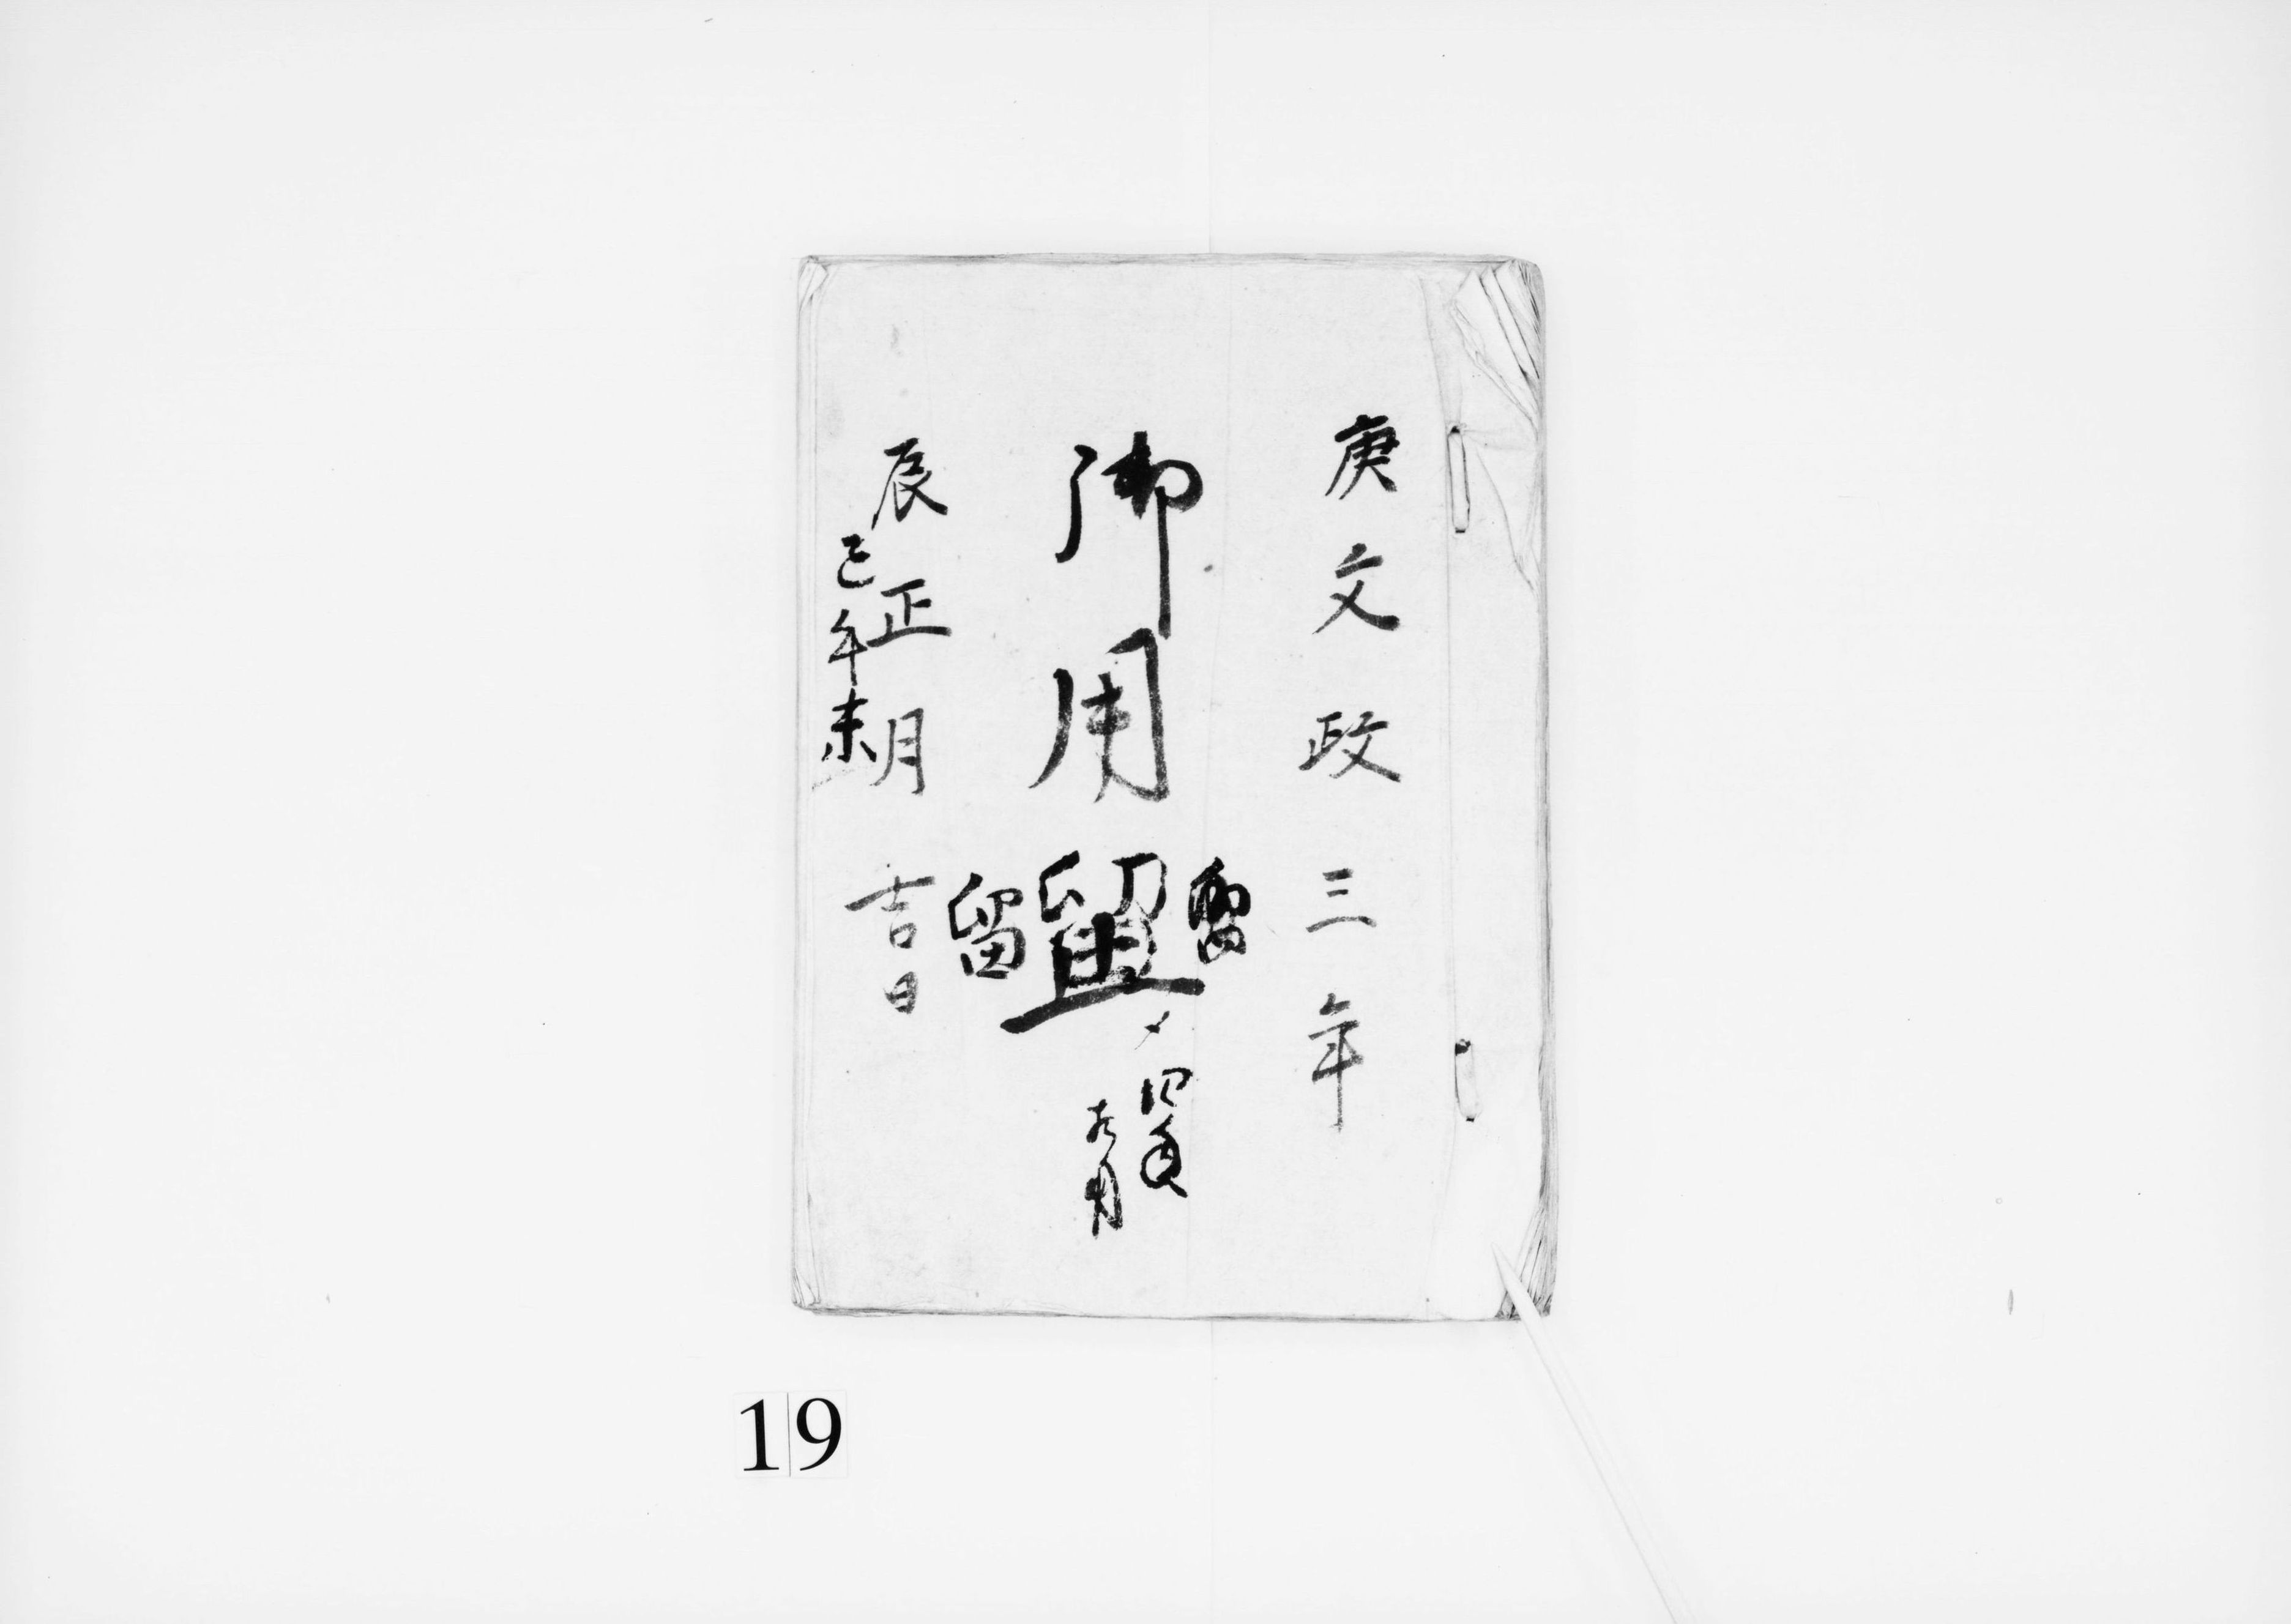 庚文政三年
留
御用留
留
辰正月吉日
巳午未
19